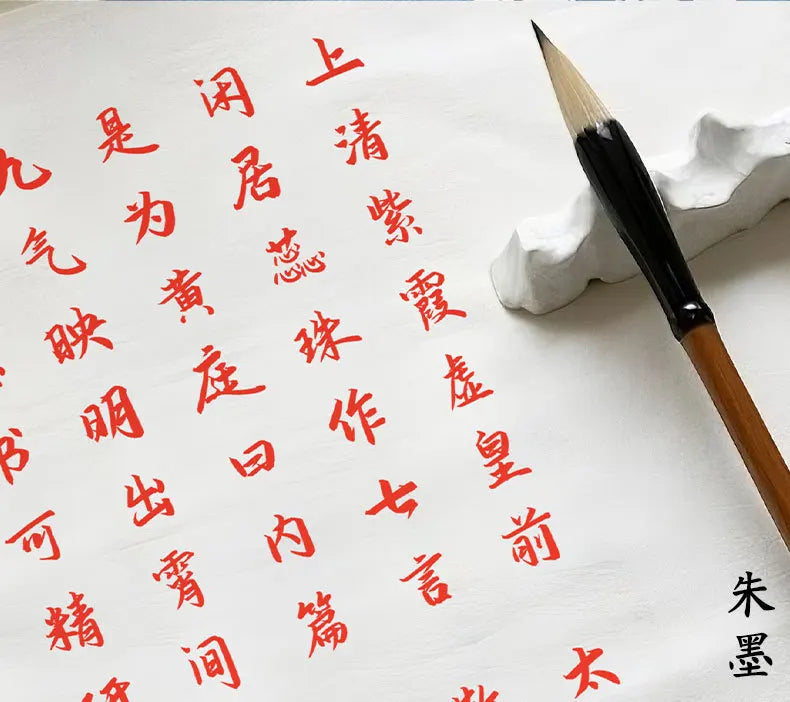 上清紫霞虚皇前 太
闲居蕊珠作七言
是为黄庭曰内篇
九气映明出霄间
书可精
朱墨